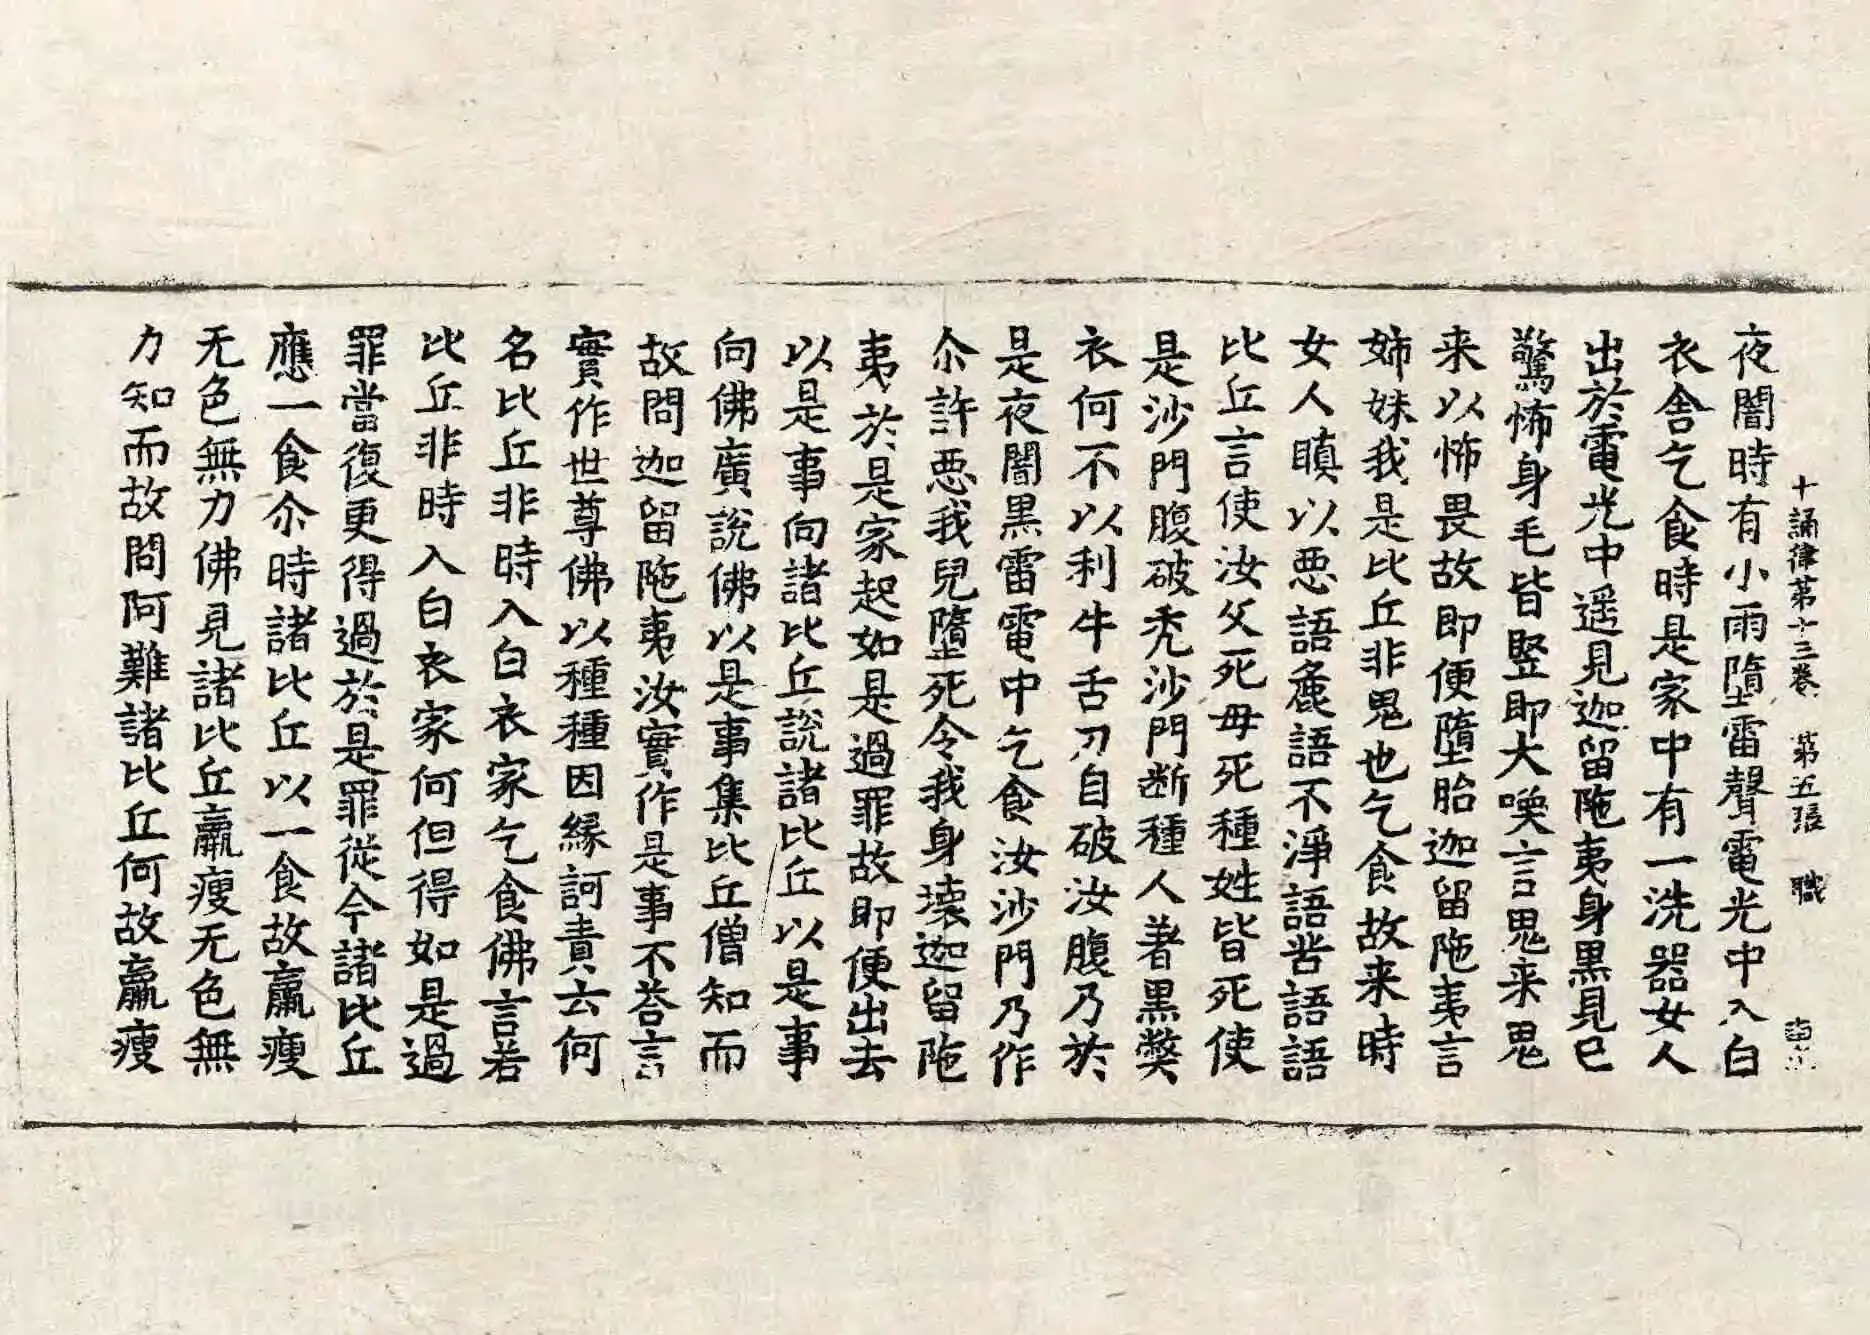 十誦律苐十三卷 第五張 職
夜闇時有小雨墮雷聲電光中入白
衣舍乞食時是家中有一洗器女人
出於電光中遥見迦留陁夷身黒見已
驚怖身毛皆竪即大喚言鬼来鬼
来以怖畏故即便墮胎迦留陁夷言
姉妹我是比丘非鬼也乞食故来時
女人瞋以惡語麁語不淨語苦語語
比丘言使汝父死母死種姓皆死使
是沙門腹破秃沙門断種人著黒弊
衣何不以利牛舌刀自破汝腹乃於
是夜闇黒雷電中乞食汝沙門乃作
尒許惡我兒墮死令我身壊迦留陁
夷於是家起如是過罪故即便出去
以是事向諸比丘說諸比丘以是事
向佛廣說佛以是事集比丘僧知而
故問迦留陁夷汝實作是事不荅言
實作世尊佛以種種因縁訶責云何
名比丘非時入白衣家乞食佛言若
比丘非時入白衣家何但得如是過
罪當復更得過於是罪従今諸比丘
應一食尒時諸比丘以一食故羸瘦
无色無力佛見諸比丘羸瘦无色無
力知而故問阿難諸比丘何故羸瘦